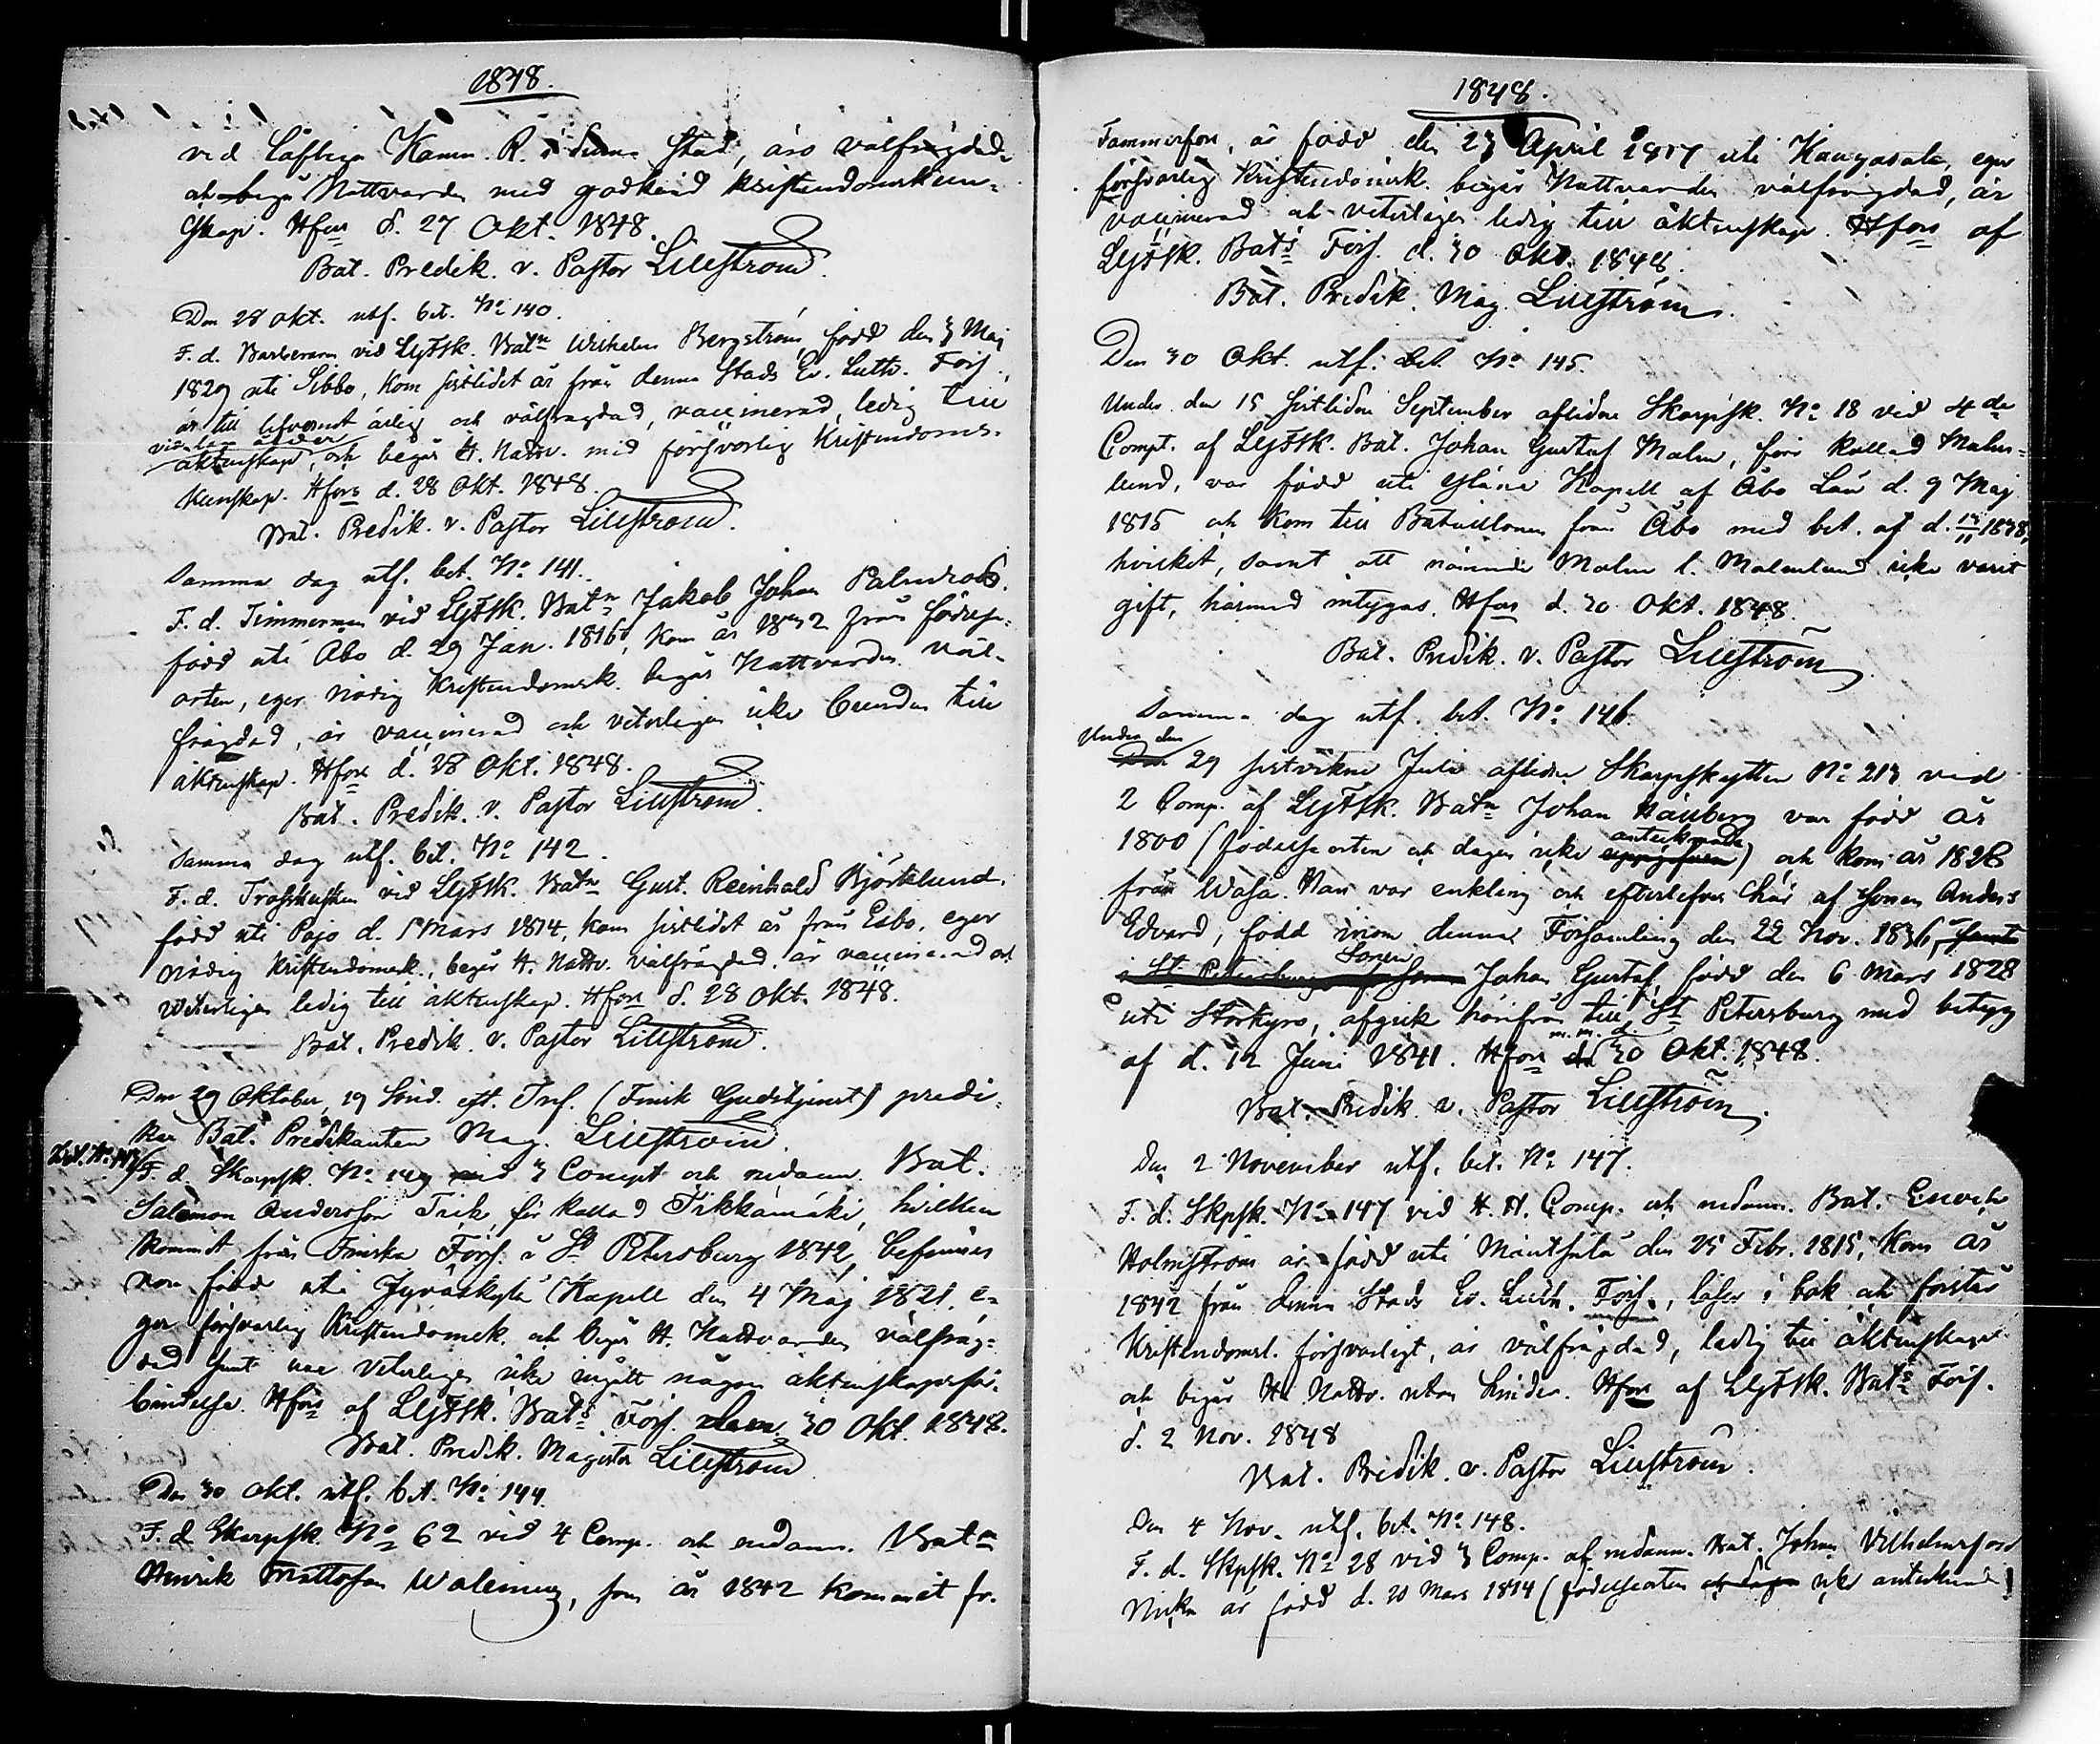 1848.
vid Läfliga Kamm. R. i denna Stad, äro välfrägdade
och begå Nattvarden med godkänd kristendomskun-
skap. Hfors d. 27 Okt. 1848.
Bat. Predik. v. Pastor Lillström.
Den 28 Okt. utf. bet. No 140.
F. d. Barberaren vid LgFSk. Batn Wilhelm Bergström, född den 3 Maj
1829 uti Sibbo, kom sistlidet år från denna Stads Ev. Luth. Förs.,
är till lefvernet ärlig och välfrägdad, vaccinerad, ledig till
vid den ålder
äktenskap, och begår H. Nattv. med försvarlig Kristendoms-
kunskap. Hfors d. 28 Okt. 1848.
Bat. Predik. v. Pastor Lillström.
Samma dag utf. bet. No 141.
F. d. Timmerman vid LgFSk. Batn Jakob Johan Palmroos.
född uti Åbo d. 29 Jan. 1816, kom år 1842 från födelse-
orten, eger nödig Kristendomsk. begår Nattvarden väl-
frägdad, är vaccinerad och veterligen icke bunden till
äktenskap. Hfors d. 28 Okt. 1848.
Bat. Predik. v. Pastor Lillström.
Samma dag utf. bet. No 142.
F. d. Trosskusken vid LgFSk. Batn Gust. Reinhold Björklund.
född uti Pojo d. 5 Mars 1814, kom sistlidet år från Esbo, eger
nödig Kristendomsk., begår H. Nattv. välfrägdad, är vaccinerad och
veterligen ledig till äktenskap. Hfors d. 28 Okt. 1848.
Bat. Predik. v. Pastor Lillström.
Den 29 Oktober, 19 Sönd. eft. Tref. (Finsk Gudstjenst) predi-
kar Bat. Predikanten Mag. Lillström.
Bet. No 143
F. d. Skarpsk. No 149 vid 3 Compt och nedann. Bat.
Salomon Andersson Trik, för kallad Tikkamäki, hvilken
kommit från Finska Förs. i St Petersburg 1842, befinnes
vara född uti Jyväskylä Kapell den 4 Maj 1821, e-
ger försvarlig Kristendomsk. och begår H. Nattvarden välfräg-
dad samt har veterligen icke ingått någon äktenskapsför-
bindelse. Hfors af LgFSk. Bats Förs. den 30 Okt. 1848.
Bat. Predik. Magister Lillström
Den 30 Okt. utf. bet. No 144.
F. d. Skarpsk. No 62 vid 4 Comp. och nedann. Batn
Henrik Mattsson Walenius, som år 1842 kommit fr.
1848.
Tammerfors, är född den 23 April 1817 uti Kangasala, eger
försvarlig Kristendomsk. begår Nattvarden välfrägdad, är
vaccinerad och veterligen ledig till äktenskap. Hfors af
LgFSk. Bats Förs. d. 30 Okt. 1848.
Bat. Predik. Mag. Lillström.
Den 30 Okt. utf. bet. No 145.
Under den 15 sistlidne September aflidne Skarpsk. No 18 vid 4de
Compt. af LgFSk. Bat. Johan Gustaf Malm, förr kallad Malm-
lund, var född uti Yläne Kapell af Åbo Län d. 9 Maj
1815 och kom till Bataillonen från Åbo med bet. af d. 1838,
hvilket, samt att nämnde Malm l. Malmlund icke varit
gift, härmed intygas. Hfors d. 30 Okt. 1848.
Bat. Predik. v. Pastor Lillström
Samma dag utf. bet. No 146.
Under den
Den 29 sistvikne Juli aflidne Skarpskytten No 213 vid
2 Comp. af LgFSk. Batn Johan Näsberg var född år
1800 (födelseorten och dagen icke uppgifven antecknade) och kom år 1828
från Wasa. Han var enkling och efterlefves här af Sonen Anders
Edvard, född inom denna Församling den 22 Nov. 1836, samt
i St Petersburg af Sonen Sonen Johan Gustaf, född den 6 Mars 1828
uti Storkyro, afgick härifrån till St Petersburg med betyg
m. m. d.
af d. 12 Juni 1841. Hfors d. 30 Okt. 1848.
Bat. Predik. v. Pastor Lillström.
Den 2 November utf. bet. No 147.
F. d. Skpsk. No 147 vid H. H. Comp. och nedann. Bat. Enoch
Holmström är född uti Mäntsälä den 25 Febr. 1815, kom år
1842 från denna Stads Ev. Luth. Förs., läser i bok och förstår
Kristendomsl. försvarligt, är välfrägdad, ledig till äktenskap
och begår H. Nattv. utan hinder. Hfors af LgFSk. Bats Förs.
d. 2 Nov. 1848
Bat. Predik. v. Pastor Lillström.
Den 4 Nov. utf. bet. No 148.
F. d. Skpsk. No 28 vid 3 Comp. af nedann. Bat. Johan Vilhelmsson
är född d. 20 Mars 1814 (födelseorten och dagen icke antecknad)